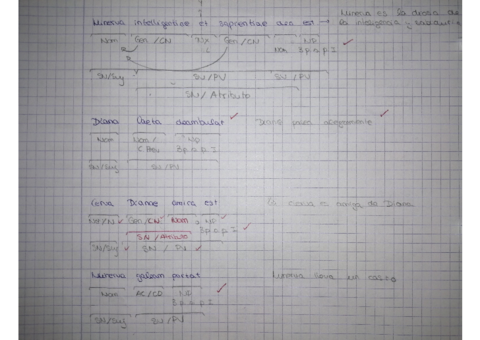 Minerva intelligentiae et sapientiae dea est → Minerva es la diosa de
la inteligencia y
Nom Gen/CN Nx Gen/CN ND
3ª p. s. p. I
SN/Suj SV/PV SV/PV
SN/Atributo
Diana laeta deambulat Diana pasea alegremente
Nom Nom/ ND
C. Pvo 3ª p. s. p. I
SN/Suj SV/PV
Cerva Dianae amica est La cierva es amiga de Diana
Gen/CN Nom ND
3ª p. s. p. I
SN/Atributo
SN/Suj SV/PV
Minerva galeam portat Minerva lleva un casco
Nom AC/CD ND
3ª p. s. p. I
SN/Suj SV/PV